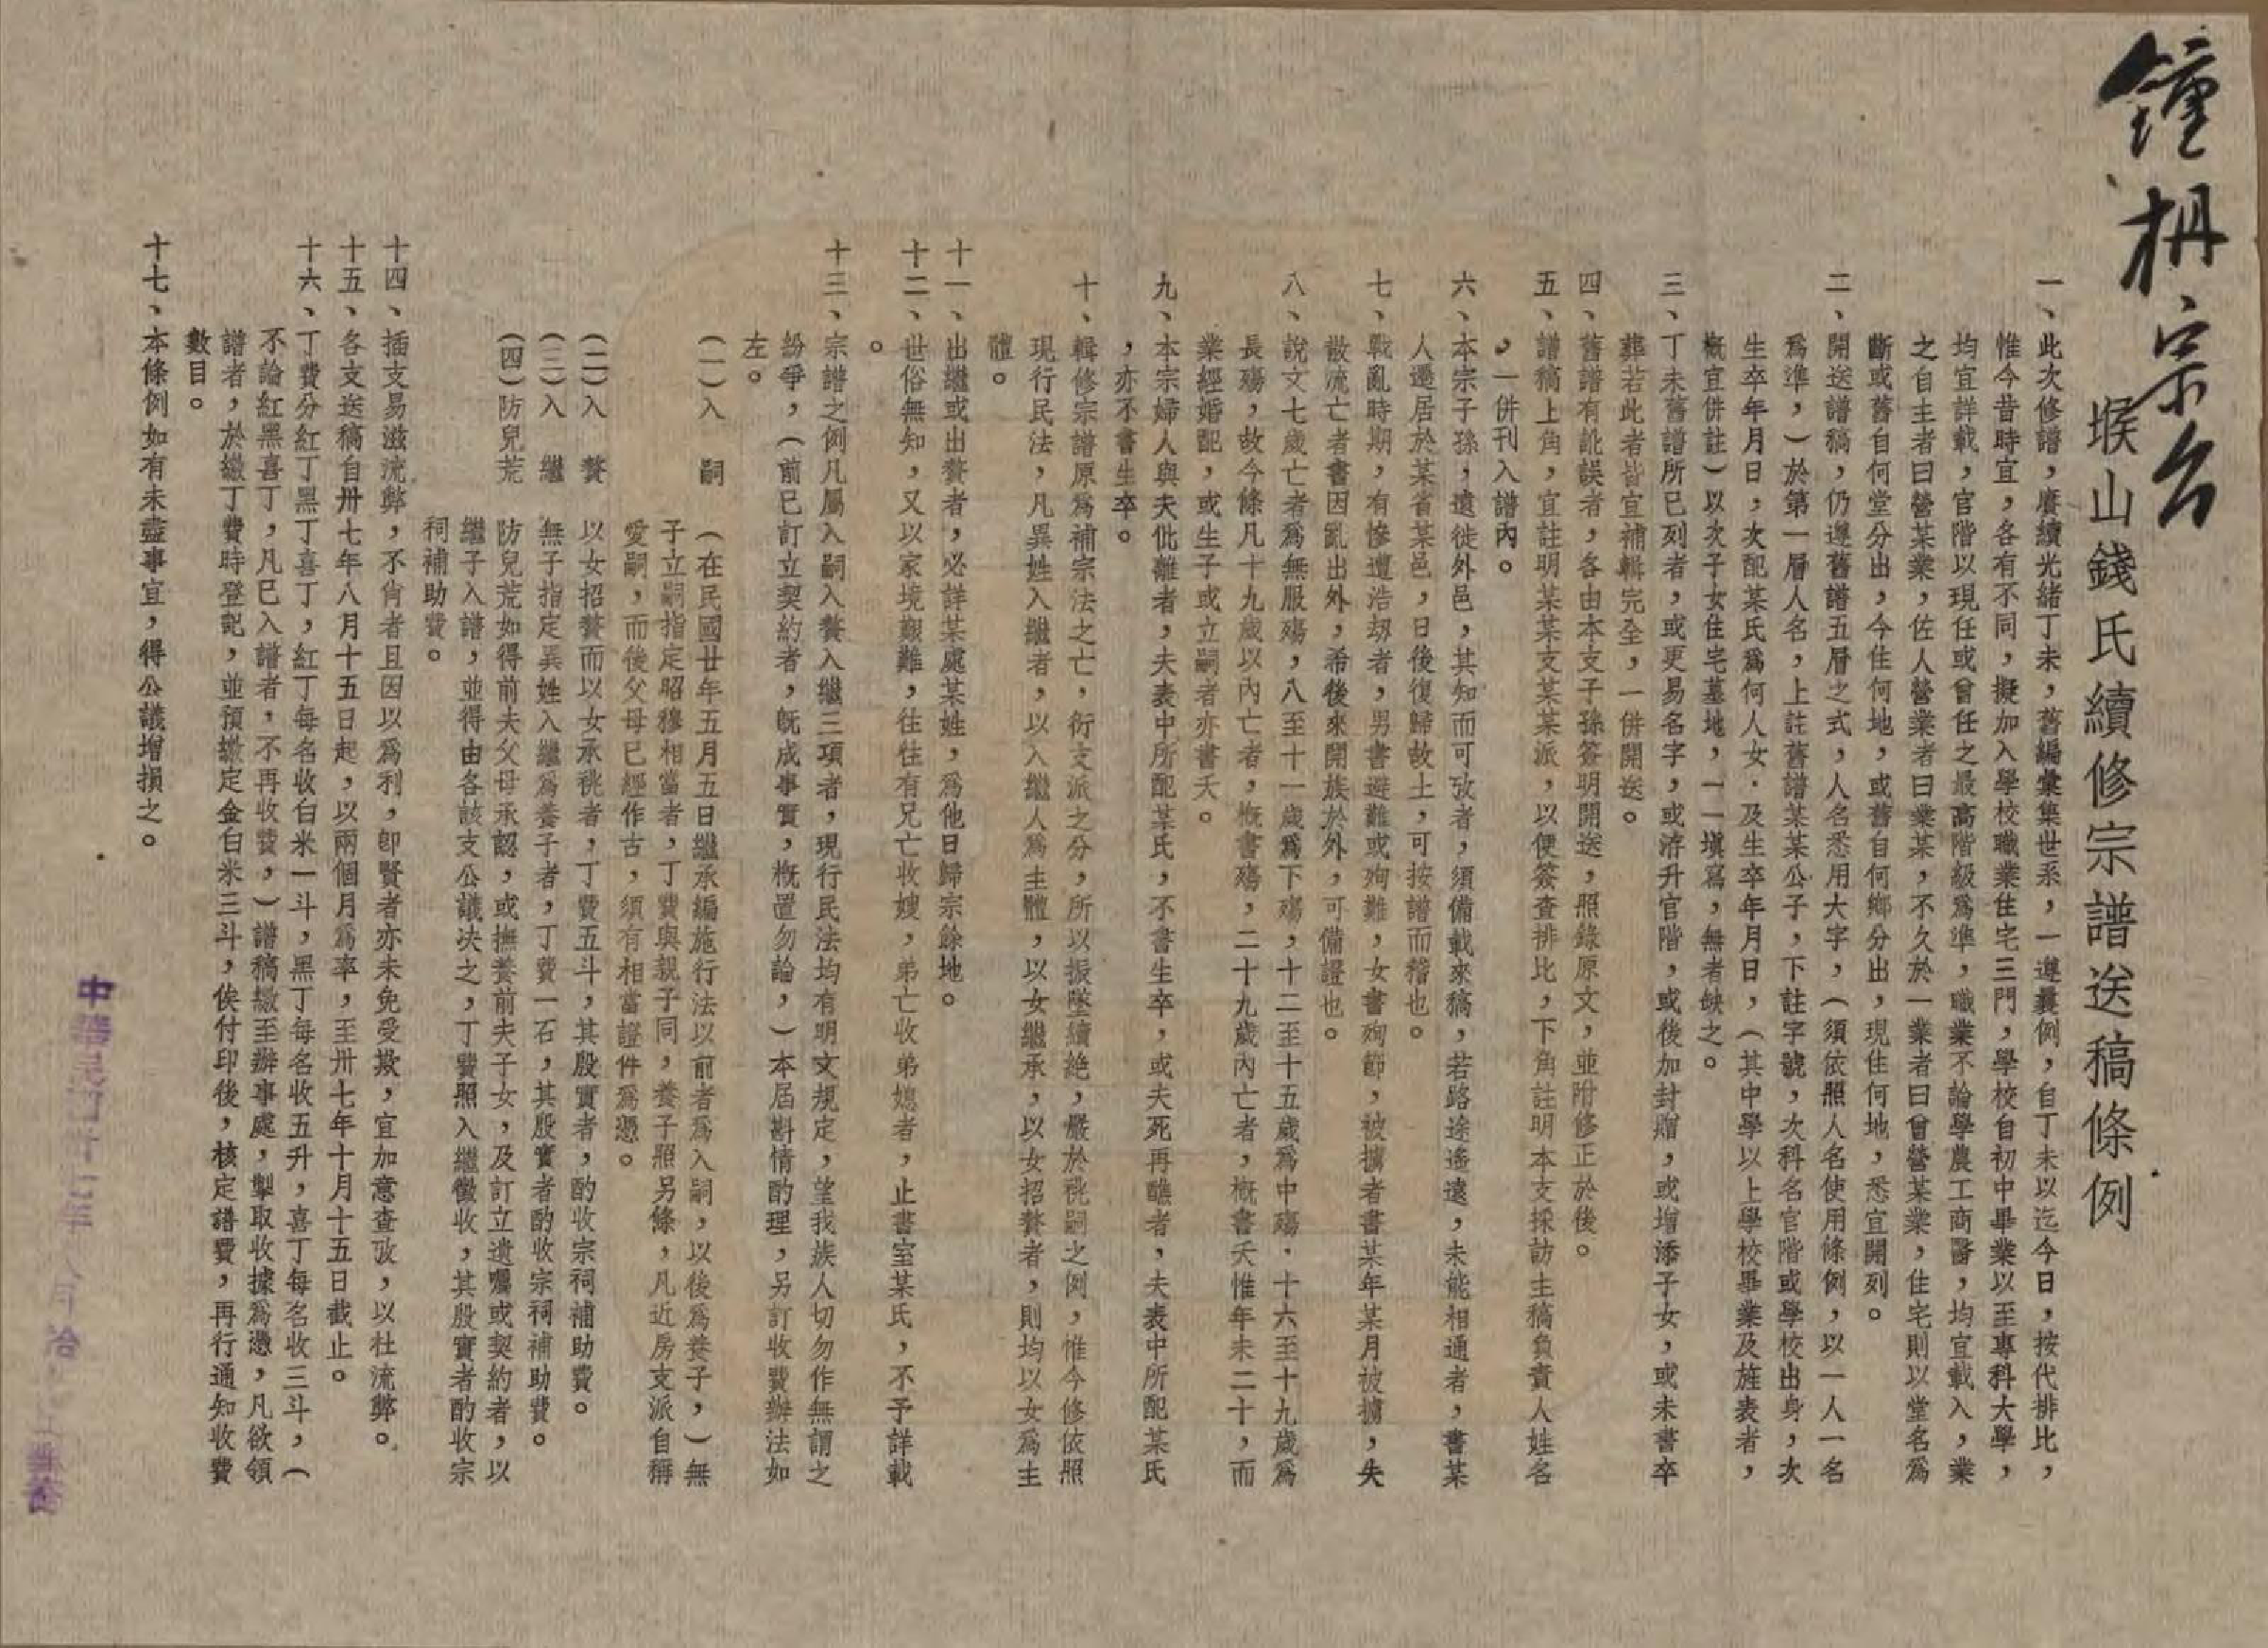 鐘枬宗台
堠山錢氏續修宗譜送稿條例
一、此次修譜，賡續光緒丁未，舊編彙集世系，一遵曩例，自丁未以迄今日，按代排比，
惟今昔時宜，各有不同，擬加入學校職業住宅三門，學校自初中畢業以至專科大學，
均宜詳載，官階以現任或曾任之最高階級爲準，職業不論學農工商醫，均宜載入，業
之自主者曰營某業，佐人營業者曰業某，不久於一業者曰曾營某業，住宅則以堂名爲
斷或舊自何堂分出，今住何地，或舊自何鄉分出，現住何地，悉宜開列。
二、開送譜稿，仍遵舊譜五層之式，人名悉用大字，（須依照人名使用條例，以一人一名
爲準，）於第一層人名，上註舊譜某某公子，下註字號，次科名官階或學校出身，次
生卒年月日，次配某氏爲何人女．及生卒年月日，（其中學以上學校畢業及旌表者，
概宜併註）以次子女住宅墓地，一一塡寫，無者缺之。
三、丁未舊譜所已列者，或更易名字，或洊升官階，或後加封贈，或增添子女，或未書卒
葬若此者皆宜補輯完全，一併開送。
四、舊譜有訛誤者，各由本支子孫簽明開送，照錄原文，並附修正於後。
五、譜稿上角，宜註明某某支某某派，以便簽查排比，下角註明本支採訪主稿負責人姓名
，一併刊入譜內。
六、本宗子孫，遠徙外邑，其知而可攷者，須備載來稿，若路途遙遠，未能相通者，書某
人遷居於某省某邑，日後復歸故土，可按譜而稽也。
七、戰亂時期，有慘遭浩刧者，男書避難或殉難，女書殉節，被擄者書某年某月被擄，失
散流亡者書因亂出外，希後來開族於外，可備證也。
八、說文七歲亡者爲無服殤，八至十一歲爲下殤，十二至十五歲爲中殤．十六至十九歲爲
長殤，故今條凡十九歲以內亡者，概書殤，二十九歲內亡者，概書夭惟年未二十，而
業經婚配，或生子或立嗣者亦書夭。
九、本宗婦人與夫仳離者，夫表中所配某氏，不書生卒，或夫死再醮者，夫表中所配某氏
，亦不書生卒。
十、輯修宗譜原爲補宗法之亡，衍支派之分，所以振墜續絶，嚴於祧嗣之例，惟今修依照
現行民法，凡異姓入繼者，以入繼人爲主體，以女繼承，以女招贅者，則均以女爲主
體。
十一、出繼或出贅者，必詳某處某姓，爲他日歸宗餘地。
十二、世俗無知，又以家境艱難，往往有兄亡收嫂，弟亡收弟媳者，止書室某氏，不予詳載
。
十三、宗譜之例凡屬入嗣入贅入繼三項者，現行民法均有明文規定，望我族人切勿作無謂之
紛爭，（前已訂立契約者，旣成事實，概置勿論，）本屆斟情酌理，另訂收費辦法如
左。
（一）入　嗣　（在民國廿年五月五日繼承編施行法以前者爲入嗣，以後爲養子，）無
子立嗣指定昭穆相當者，丁費與親子同，養子照另條，凡近房支派自稱
愛嗣，而後父母已經作古，須有相當證件爲憑。
（二）入　贅　以女招贅而以女承祧者，丁費五斗，其殷實者，酌收宗祠補助費。
（三）入　繼　無子指定異姓入繼爲養子者，丁費一石，其殷實者酌收宗祠補助費。
（四）防兒荒　防兒荒如得前夫父母承認，或撫養前夫子女，及訂立遺囑或契約者，以
繼子入譜，並得由各該支公議决之，丁費照入繼徵收，其殷實者酌收宗
祠補助費。
十四、插支易滋流弊，不肖者且因以爲利，卽賢者亦未免受欺，宜加意查攷，以杜流弊。
十五、各支送稿自卅七年八月十五日起，以兩個月爲率，至卅七年十月十五日截止。
十六、丁費分紅丁黑丁喜丁，紅丁每名收白米一斗，黑丁每名收五升，喜丁每名收三斗，（
不論紅黑喜丁，凡已入譜者，不再收費，）譜稿繳至辦事處，掣取收據爲憑，凡欲領
譜者，於繳丁費時登記，並預繳定金白米三斗，俟付印後，核定譜費，再行通知收費
數目。
十七、本條例如有未盡事宜，得公議增損之。
中華民國卅七年八月拾